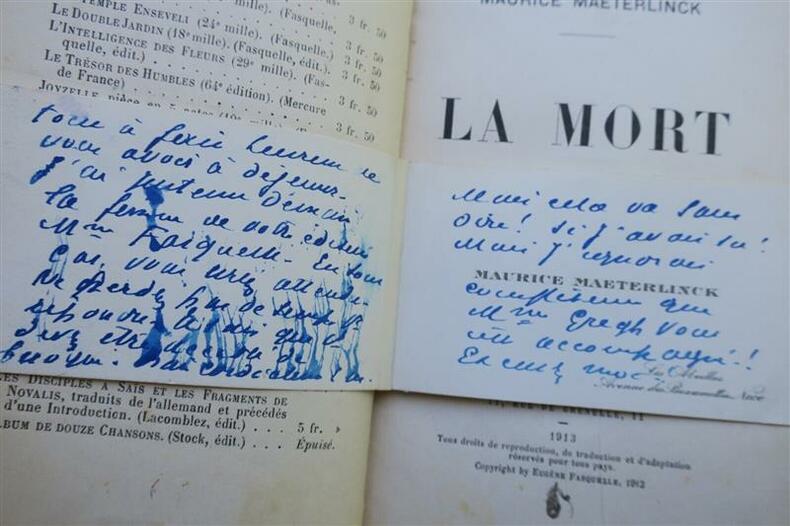 TEMPLE ENSEVELI (24e mille). (Fasquelle,
édit.) 3 fr. 50
LE DOUBLE JARDIN (18e mille). (Fasquelle.) 3 fr. 50
L'INTELLIGENCE DES FLEURS (29e mille). (Fas-
quelle, édit.) 3 fr. 50
LE TRÉSOR DES HUMBLES (64e édition). (Mercure
de France) 3 fr. 50
JOYZELLE, pièce en 5 actes
tout à fait heureux de
vous avoir à déjeuner.
J'ai justement demain
la femme de votre éditeur
Mme Fasquelle. En tout
cas, vous serez attendu
Ne perdez pas de temps
répondre
LES DISCIPLES A SAÏS ET LES FRAGMENTS DE
NOVALIS, traduits de l'allemand et précédés
d'une Introduction. (Lacomblez, édit.) . . . 5 fr. »
ALBUM DE DOUZE CHANSONS. (Stock, édit.) . . . Épuisé.
MAURICE MAETERLINCK
LA MORT
Mais cela va sans
dire! Si j'avais su!
Mais j'ignorais
MAURICE MAETERLINCK
complètement que
Mme Gregh vous
accompagné!!
Excusez moi
Les Abeilles
Avenue des Baumettes, Nice
11, RUE DE GRENELLE, 11
1913
Tous droits de reproduction, de traduction et d'adaptation
réservés pour tous pays.
Copyright by EUGÈNE FASQUELLE, 1912